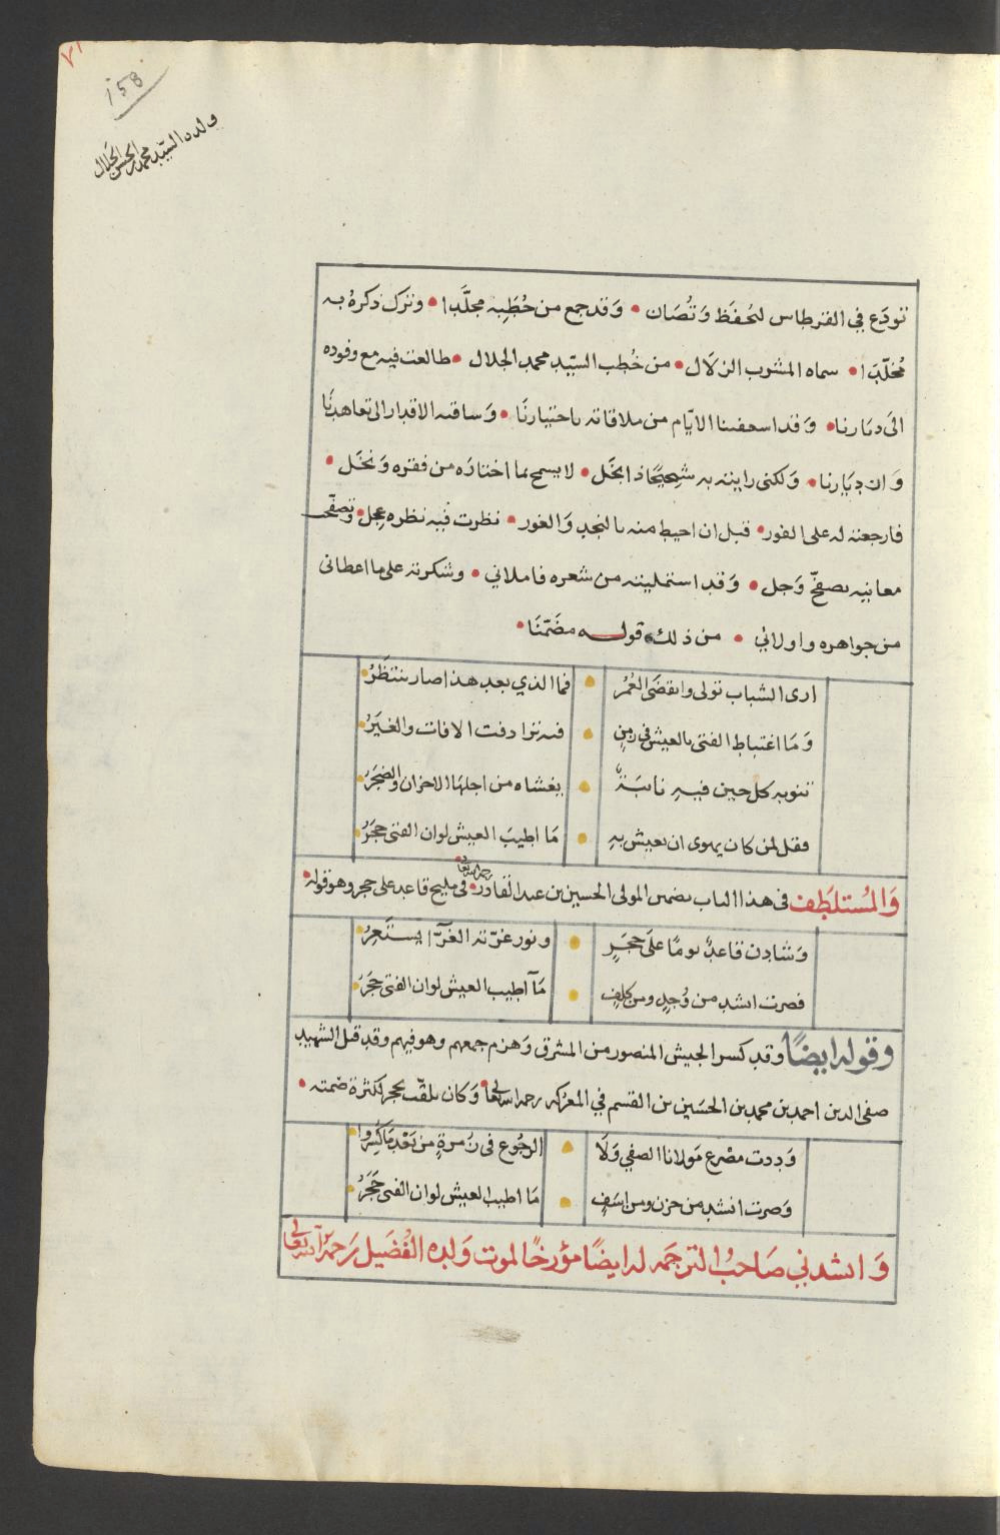 ٧١
158
ولده السيد محمد بن الحسن الجلال
تودَع في القرطاس لتُحفَظ وَتُصَان • وَقد جمع من خُطَبِه مجلّدا • وترك ذكرهُ به
مُخلّدا • سماه المشرب الزلَال • من خُطب السيّد محمد الجلال • طالعت فيه مع وفوده
الىَ ديارنا • وَقد اسعفتنا الايّام من ملاقاته باختيارنَا • وَساقته الاقدار الى تعاهدنَا
وَ ديَارنا • وَلكنى رايته به شحِيحًا ذا بخَل • لا يسمح بما اختارَه من فقره وَنخَل •
فارجعته له على الفور • قبل ان احيط منه بالنجد وَالغور • نظرت فيه نظره عجِل • وتصفّحت
معانيه تصفحّ وَجل • وَقد استمليته من شعره فاملاني • وشكرته على ما اعطانى
من جواهره واولاني • من ذلك قولــه مضَمّنَا •
ارى الشباب تولى وانقضَى العُمُر • فما الذي بعد هذا صار ينتظَرُ
وَمَا اغتباط الفتى بالعيش في زمنٍ • فيه ترادفت الافات والغيَرُ
تنوبه كل حين فيهِ نائبَةٌ • يغشاه من اجلهَا الاحزان والضجَرُ
فقل لمن كان يهوى ان يعيش بهِ • مَا اطيبَ العيش لو ان الفتى حجَرُ
وَالمُستلطَف فى هذا الباب تضمين المولى الحسين بن عبد القادر رحمه الله تعالى • فى مليح قاعد على حجر وهو قوله •
وَشادن قاعدٌ يومًا علَى حجَرٍ • ونور غرّته الغَرّآ يستَعِرُ
فصرت انشد من وُجدٍ ومن كلفٍ • مَآ اطيب العيش لو ان الفتى حجَرُ
وقوله ايضًا وقد كسر الجيش المنصور من المشرق وَهزم جمعهم وهو فيهم وقد قتل الشهيد
صفى الدين احمد بن محمد بن الحسَين بن القسم في المعركه رحمه الله تعالى • وَكان يلقّب بحجر لكثرة صَمته •
وَددت مصْرع مَولانا الصفي وَلَا • الرجُوع فى زُمرةٍ من بَعْد مَا كُسِروا
وَصرت انشد من حزن ومن اسَفٍ • مَا اطيب العيش لو ان الفتى حَجَرُ
وَانشدني صَاحبُ الترجَمه له ايضًا مؤرخًا لموت وَلده الفُضَيل رَحمَهُ الله تعالى